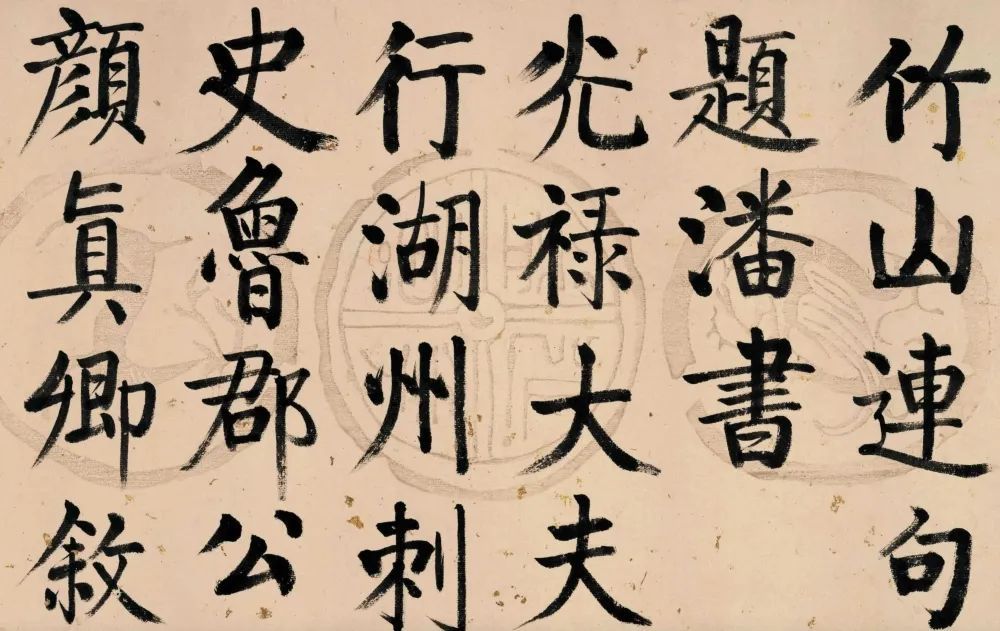 竹山連句
題潘書
光祿大夫
行湖州刺
史魯郡公
顏真卿敘